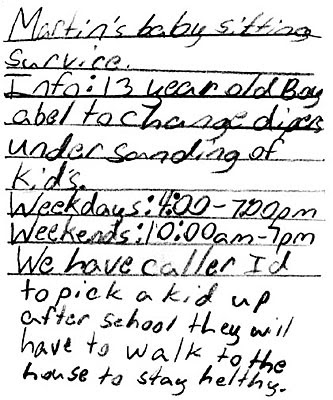 Martin's baby sitting
survice.
Info: 13 year old Boy
abel to change dipers
under sanding of
kids.
Weekdays: 4:00-7:00pm
Weekends: 10:00am-7pm
We have caller Id
to pick a kid up
after school they will
have to walk to the
house to stay helthy.